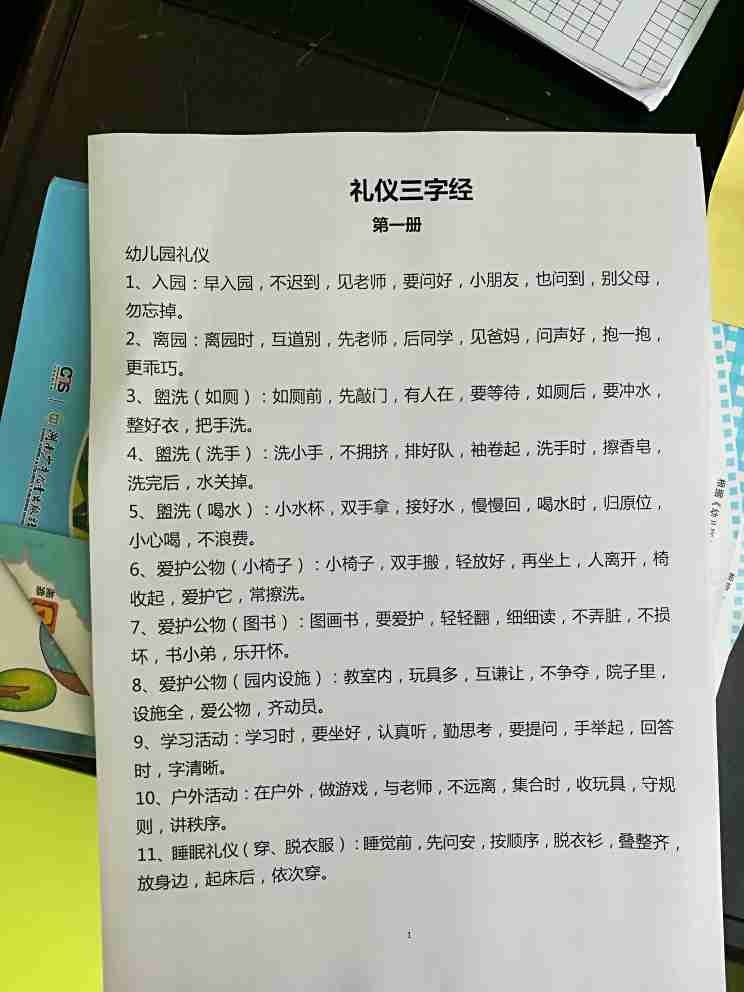 礼仪三字经
第一册
幼儿园礼仪
1、入园：早入园，不迟到，见老师，要问好，小朋友，也问到，别父母，
勿忘掉。
2、离园：离园时，互道别，先老师，后同学，见爸妈，问声好，抱一抱，
更乖巧。
3、盥洗（如厕）：如厕前，先敲门，有人在，要等待，如厕后，要冲水，
整好衣，把手洗。
4、盥洗（洗手）：洗小手，不拥挤，排好队，袖卷起，洗手时，擦香皂，
洗完后，水关掉。
5、盥洗（喝水）：小水杯，双手拿，接好水，慢慢回，喝水时，归原位，
小心喝，不浪费。
6、爱护公物（小椅子）：小椅子，双手搬，轻放好，再坐上，人离开，椅
收起，爱护它，常擦洗。
7、爱护公物（图书）：图画书，要爱护，轻轻翻，细细读，不弄脏，不损
坏，书小弟，乐开怀。
8、爱护公物（园内设施）：教室内，玩具多，互谦让，不争夺，院子里，
设施全，爱公物，齐动员。
9、学习活动：学习时，要坐好，认真听，勤思考，要提问，手举起，回答
时，字清晰。
10、户外活动：在户外，做游戏，与老师，不远离，集合时，收玩具，守规
则，讲秩序。
11、睡眠礼仪（穿、脱衣服）：睡觉前，先问安，按顺序，脱衣衫，叠整齐，
放身边，起床后，依次穿。
1
CTS
视频
根据《幼